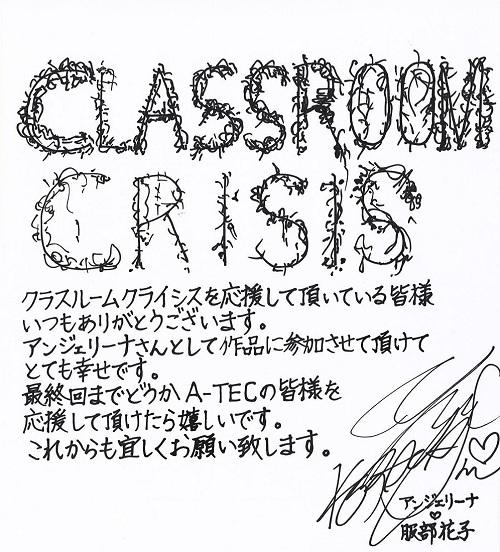 CLASSROOM
CRISIS
クラスルームクライシスを応援して頂いている皆様
いつもありがとうございます。
アンジェリーナさんとして作品に参加させて頂けて
とても幸せです。
最終回までどうかA-TECの皆様を
応援して頂けたら嬉しいです。
これからも宜しくお願い致します。
アンジェリーナ
服部花子